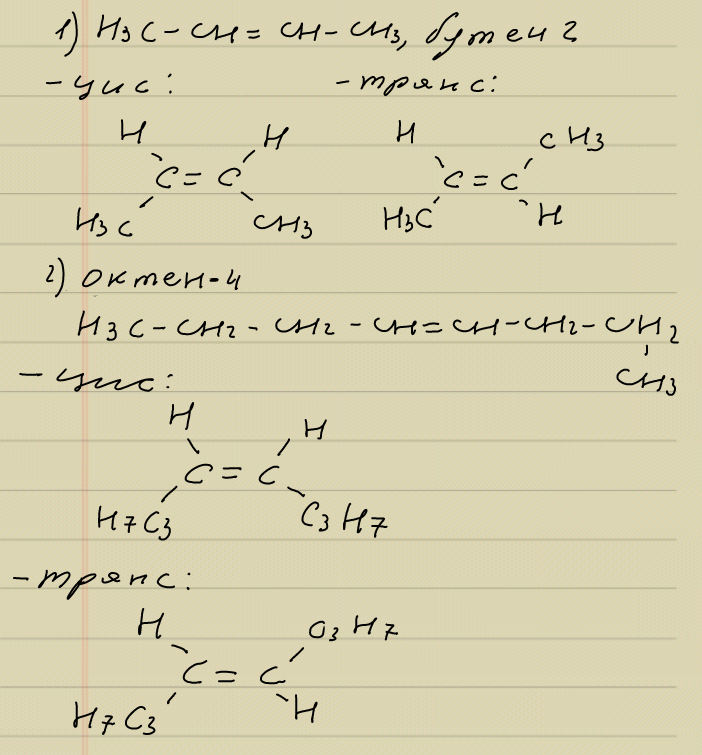 1) H3C - CH = CH - CH3, бутен 2
- цис: - транс:
H H H CH3
C = C C = C
H3C CH3 H3C H
2) Октен-4
H3C - CH2 - CH2 - CH = CH - CH2 - CH2
CH3
- цис:
H H
C = C
H7C3 C3H7
- транс:
H C3H7
C = C
H7C3 H